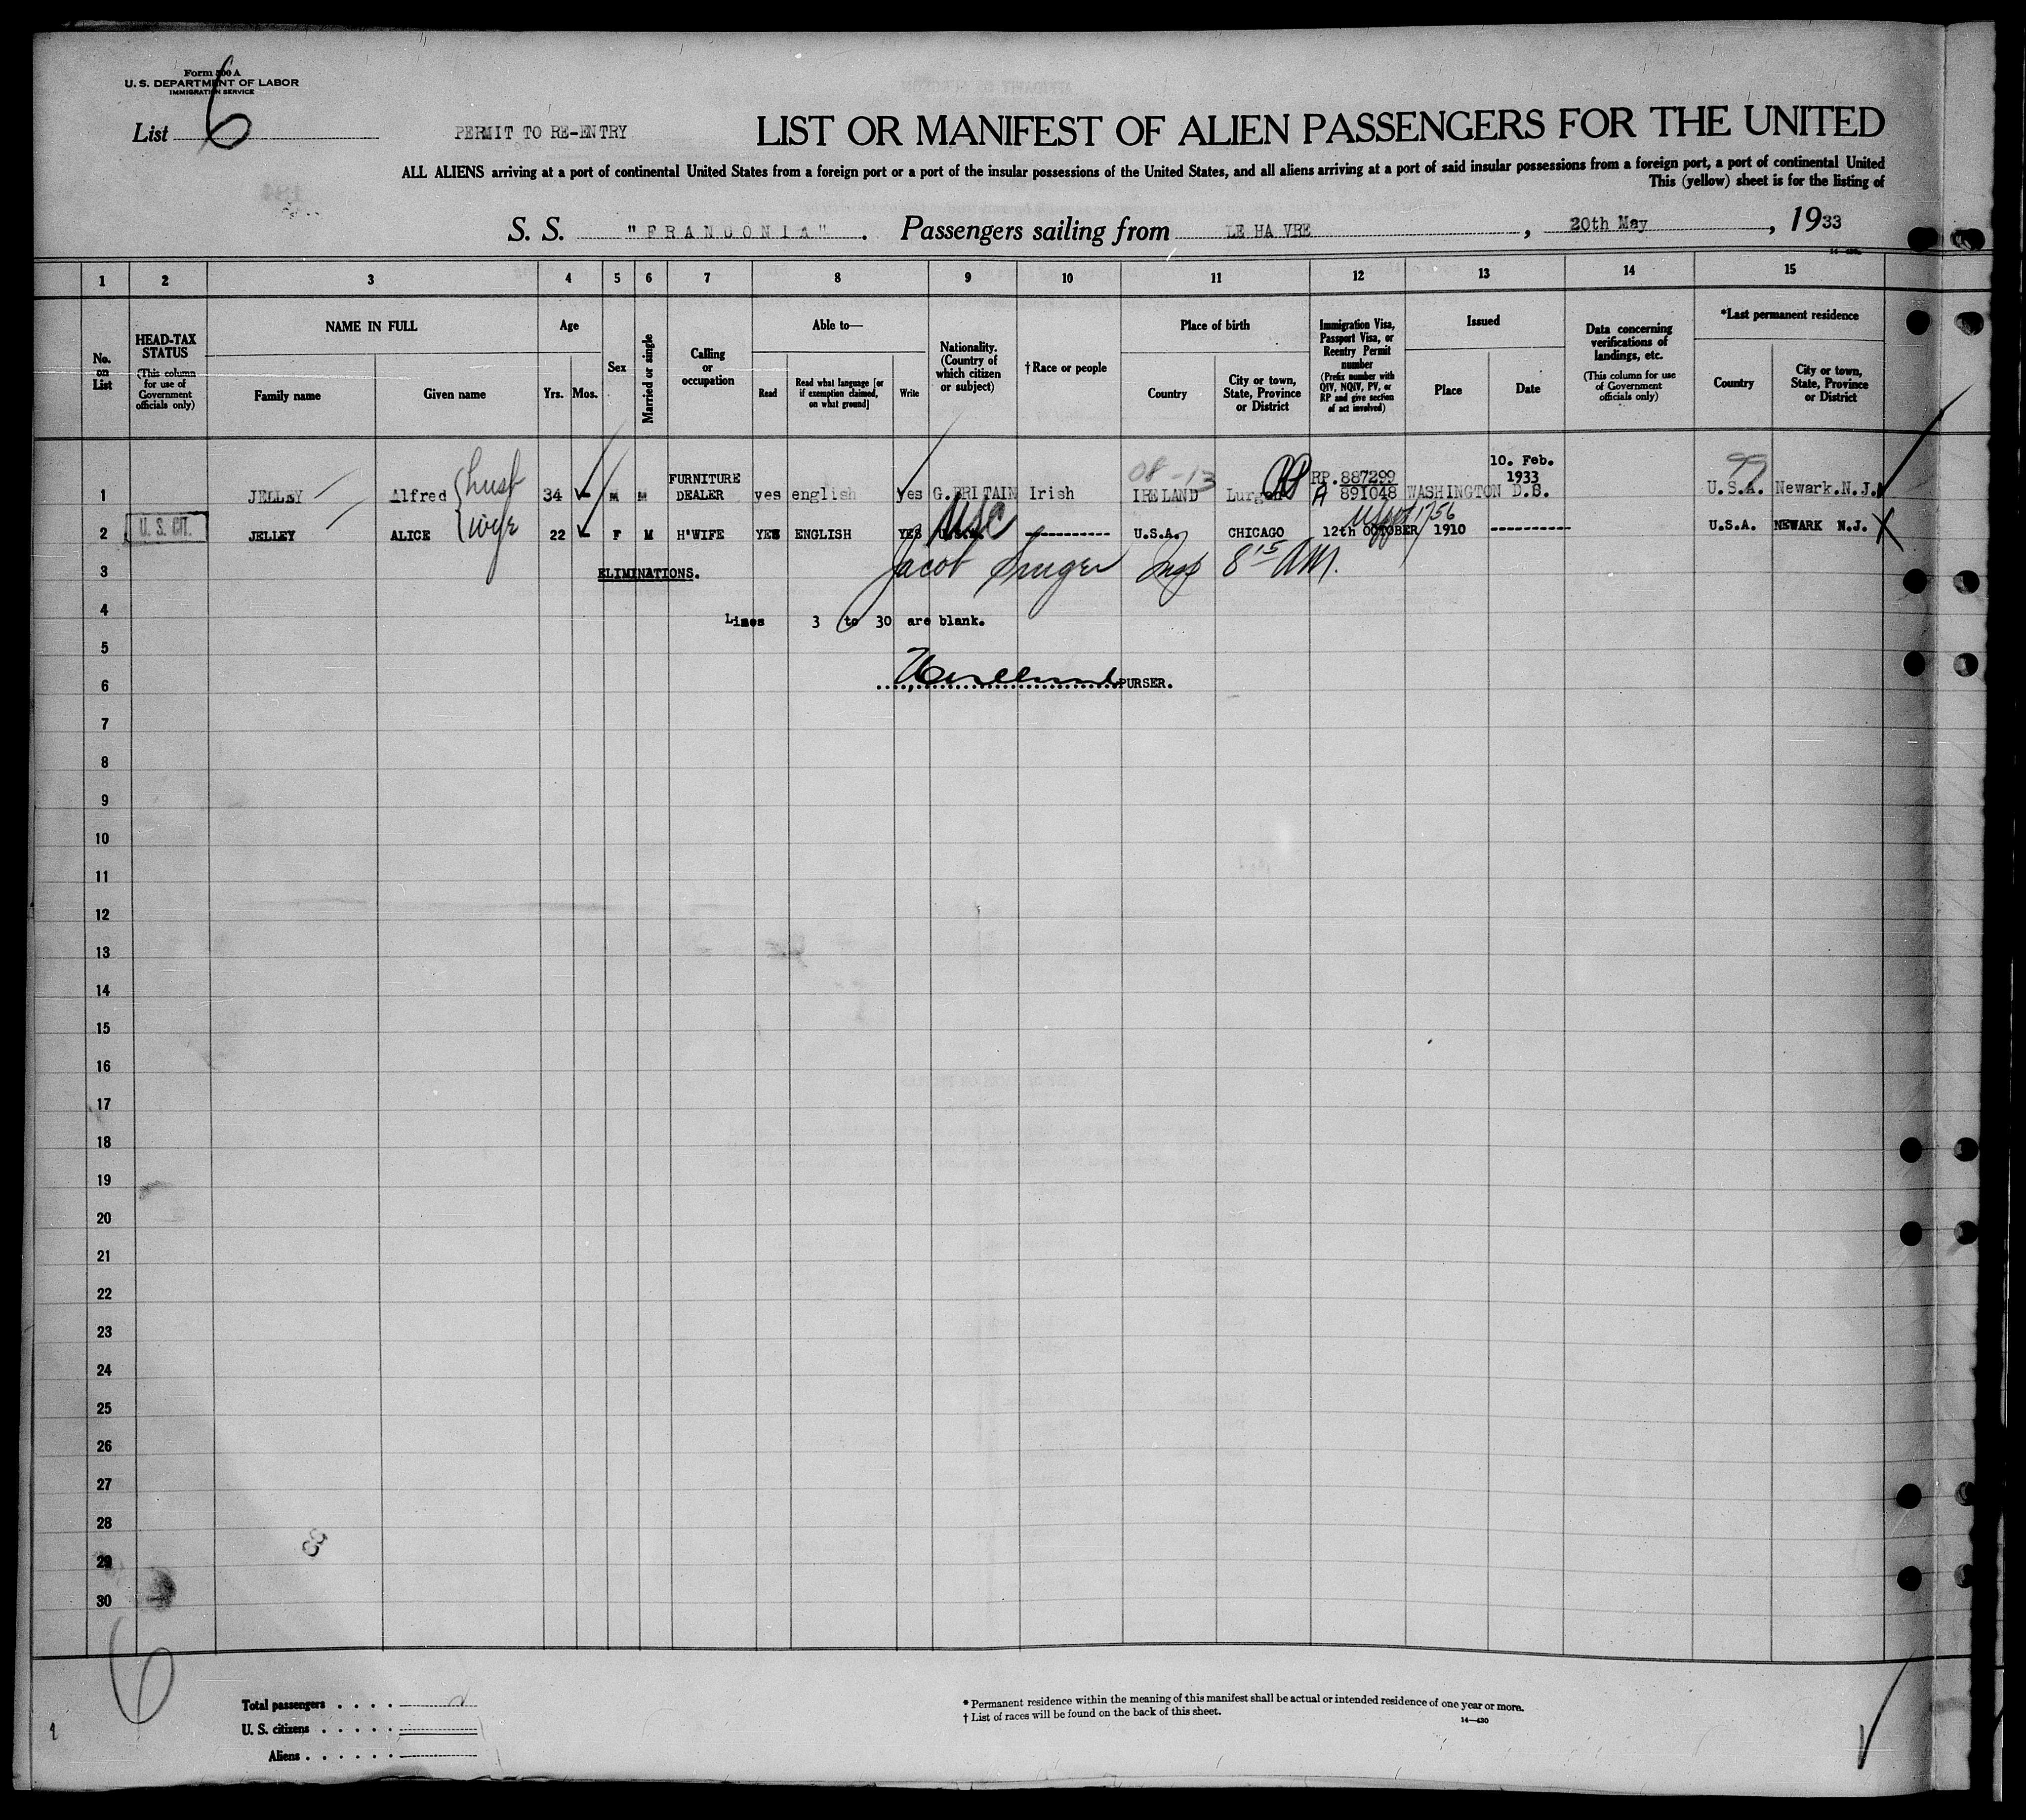 Form 500 A
U. S. DEPARTMENT OF LABOR
IMMIGRATION SERVICE
List 6
PERMIT TO RE-ENTRY
LIST OR MANIFEST OF ALIEN PASSENGERS FOR THE UNITED
ALL ALIENS arriving at a port of continental United States from a foreign port or a port of the insular possessions of the United States, and all aliens arriving at a port of said insular possessions from a foreign port, a port of continental United
This (yellow) sheet is for the listing of
S. S. "FRANCONIA". Passengers sailing from LE HAVRE, 20th May, 1933
1 2 3 4 5 6 7 8 9 10 11 12 13 14 15
No. on List
HEAD-TAX STATUS (This column for use of Government officials only)
NAME IN FULL
Family name
Given name
Age
Yrs. Mos.
Sex
Married or single
Calling or occupation
Able to—
Read
Read what language [or if exemption claimed, on what ground]
Write
Nationality. (Country of which citizen or subject)
†Race or people
Place of birth
Country
City or town, State, Province or District
Immigration Visa, Passport Visa, or Reentry Permit number (Prefix number with QIV, NQIV, PV, or RP and give section of act involved)
Issued
Place
Date
Data concerning verifications of landings, etc. (This column for use of Government officials only)
*Last permanent residence
Country
City or town, State, Province or District
08-13
99
1 JELLEY Alfred husb 34 M M FURNITURE DEALER yes english yes G.BRITAIN Irish IRELAND Lurgan RP. 887299 A 891048 WASHINGTON D.S. 10. Feb. 1933 U.S.A. Newark.N.J.
2 U. S. CIT. JELLEY ALICE wife 22 F M H'WIFE YES ENGLISH YES U.S.A. USC ----------- U.S.A. CHICAGO 12th OCTOBER 1910 ----------- U.S.A. NEWARK N.J. X
3 ELIMINATIONS. Jacob Insp 8 15 AM.
4 Lines 3 to 30 are blank.
5
6 PURSER.
7
8
9
10
11
12
13
14
15
16
17
18
19
20
21
22
23
24
25
26
27
28
29
30
33
6
Total passengers . . . .
U. S. citizens . . . . .
Aliens . . . . . .
* Permanent residence within the meaning of this manifest shall be actual or intended residence of one year or more.
† List of races will be found on the back of this sheet.
14—430